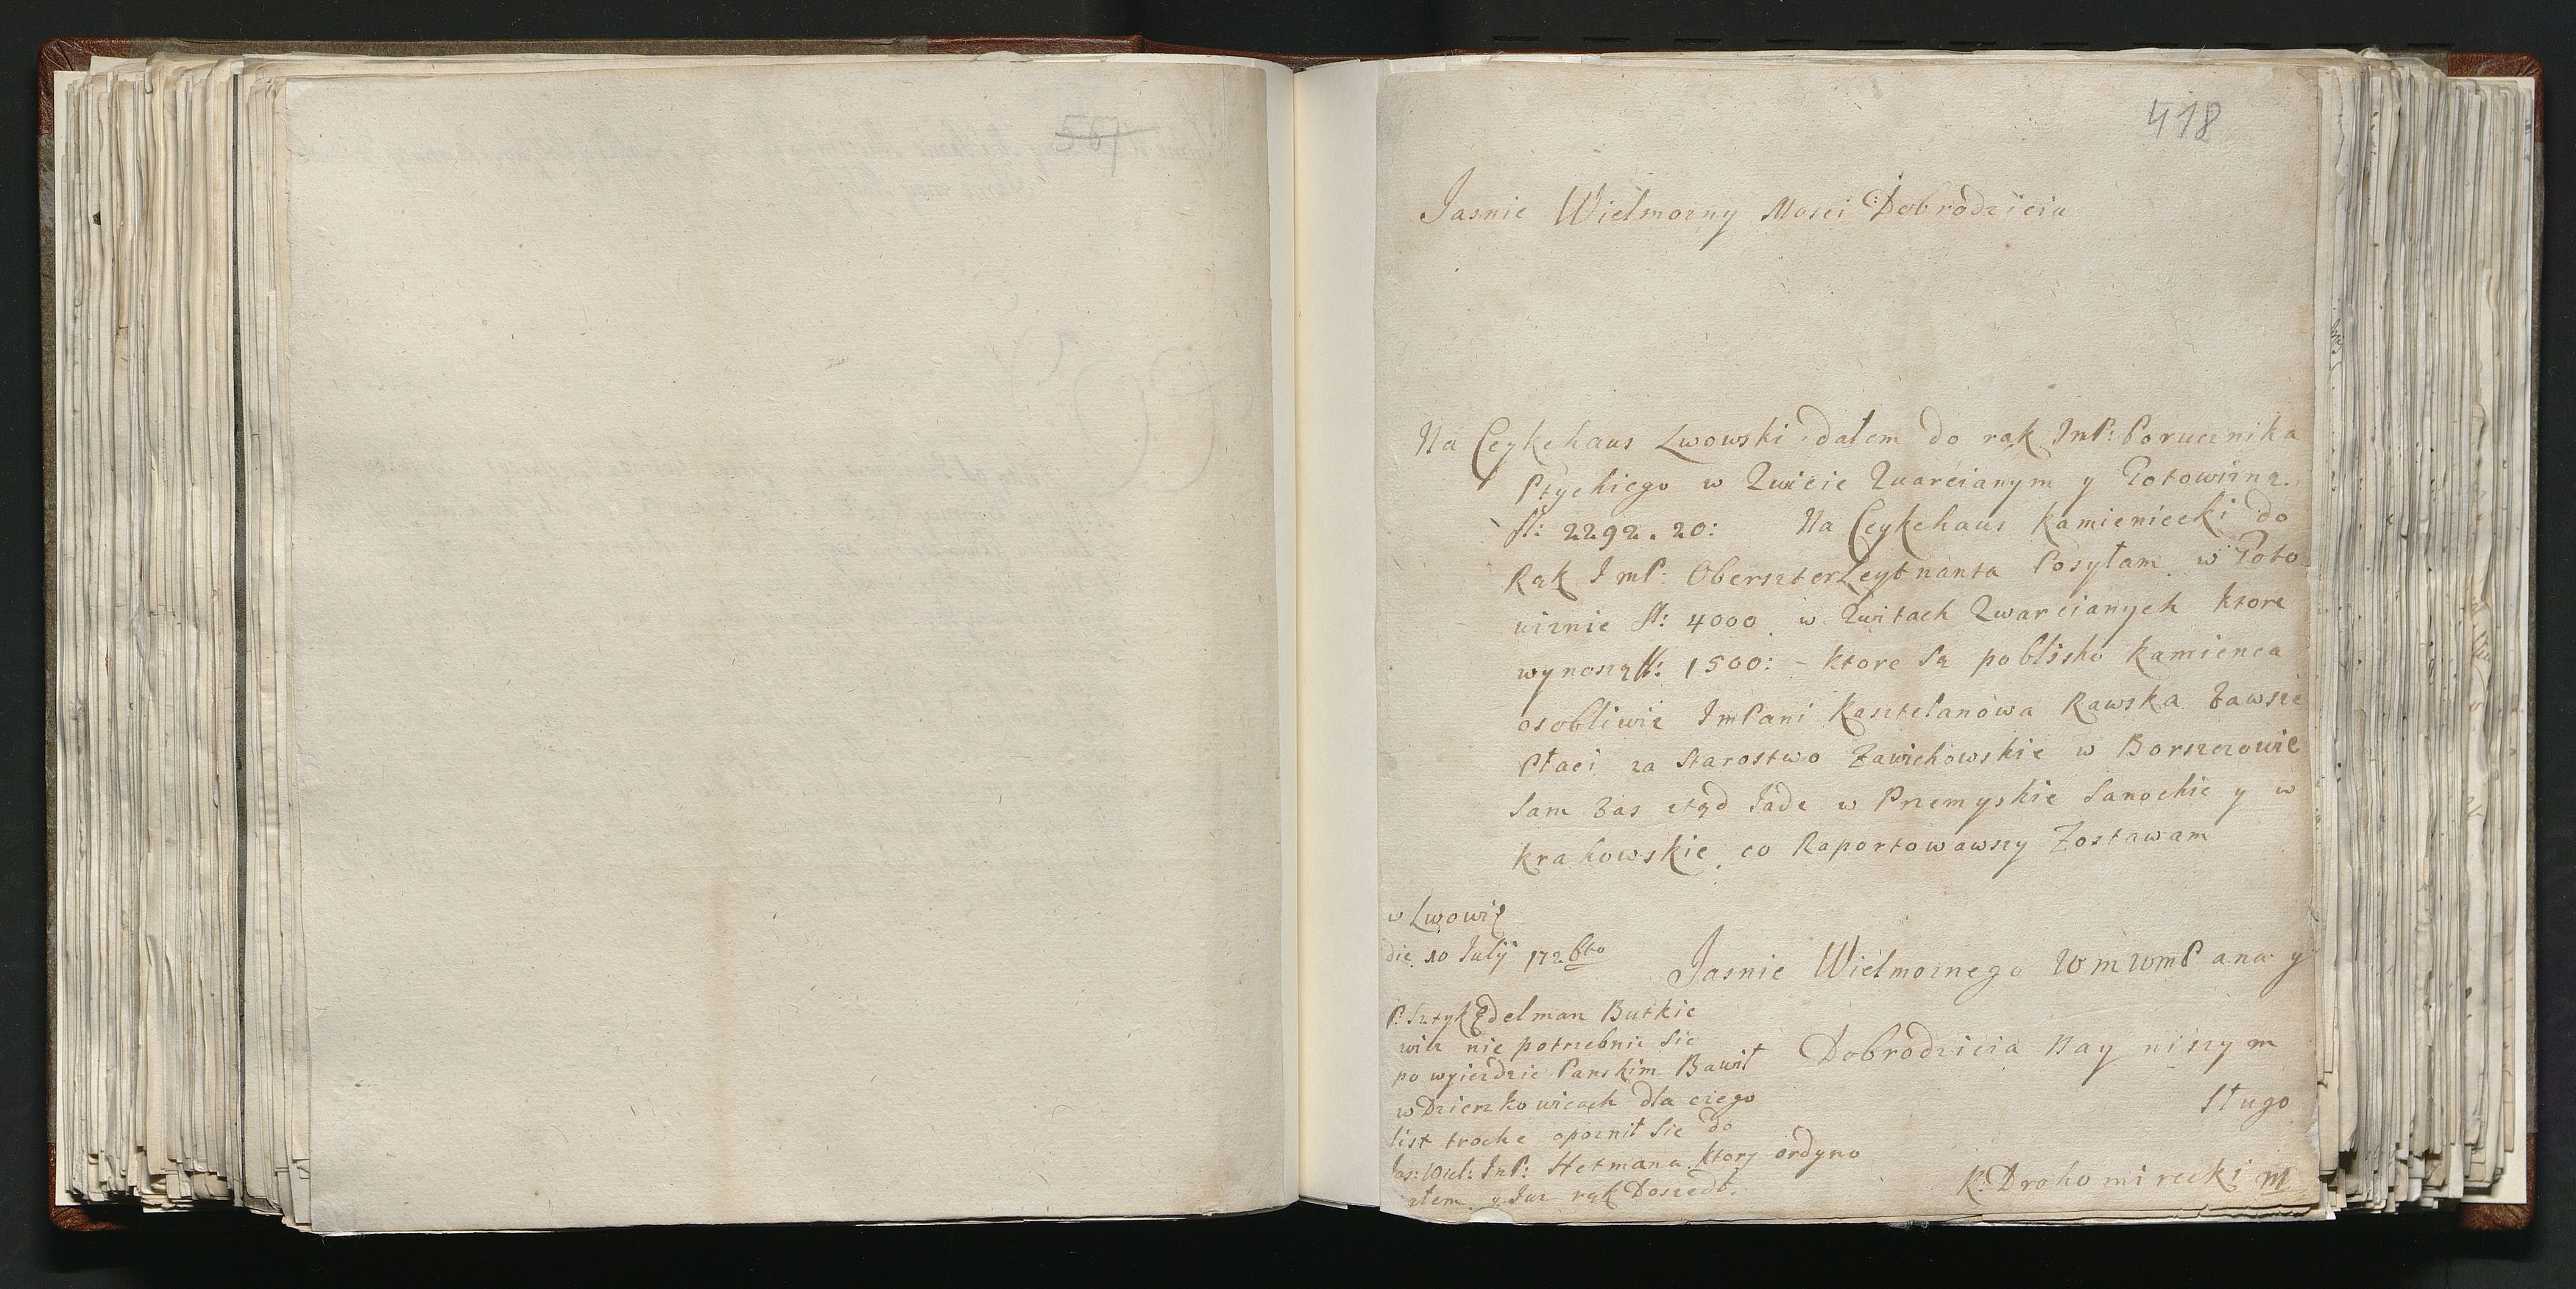 567
418
Jasnie Wielmozny Mosci Dobrodzieiu
Na Ceykehaus Lwowski dałem do rąk ImP: Porucznika
Ptyckiego w Quicie Quarcianym y Gotowizną.
fl: 2292. 20: Na Ceykehaus Kamieniecki do
Rąk ImP: OberszterLeytnanta Posyłam w Goto
wiznie fl: 4000 w Quitach Quarcianych ktore
wynoszą fl: 1500: - ktore Są poblisko Kamienca
osobliwie ImPani Kasztelanowa Rawska Zawsze
Płaci za Starostwo Zawichowskie w Borszczowie
Sam Zas ztąd Jade w Przemyskie Sanockie y w
Krakowskie co Raportowawszy Zostawam
w Lwowie
die 10 Julij 1726to
Jasnie Wielmoznego WmwmPana y
Dobrodzieia Nayniszym
Sługo
K: Drohomirecki m
P: Sztyk Edelman Butkie
wicz nie potrzebnie Sie
po wyiezdzie Panskim Bawił
w Dzierzkowicach dla czego
list troche opoznił Sie do
Jas: Wiel: ImP: Hetmana ktory ordyno
ałem y Juz rąk Doszedł.